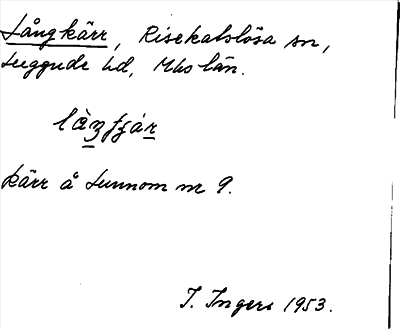 Långkärr, Risekatslösa sn,
Luggude hd, Mhs län.
kärr å Lunnom nr 9.
I. Ingers 1953.